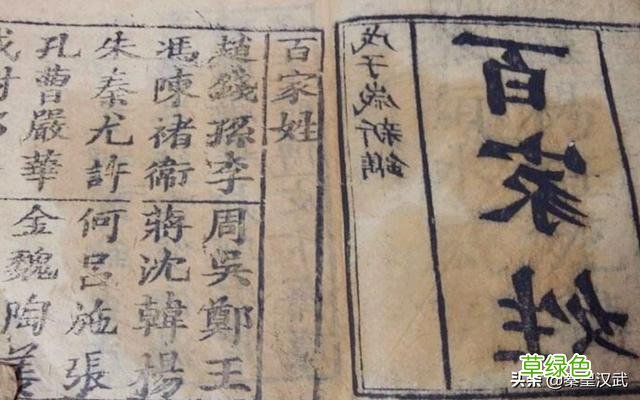 百家姓
戊子歲新鐫
百家姓
趙錢孫李 周吳鄭王
馮陳褚衛 蔣沈韓楊
朱秦尤許 何呂施張
孔曹嚴華 金魏陶姜
草绿色
头条 @秦皇汉武